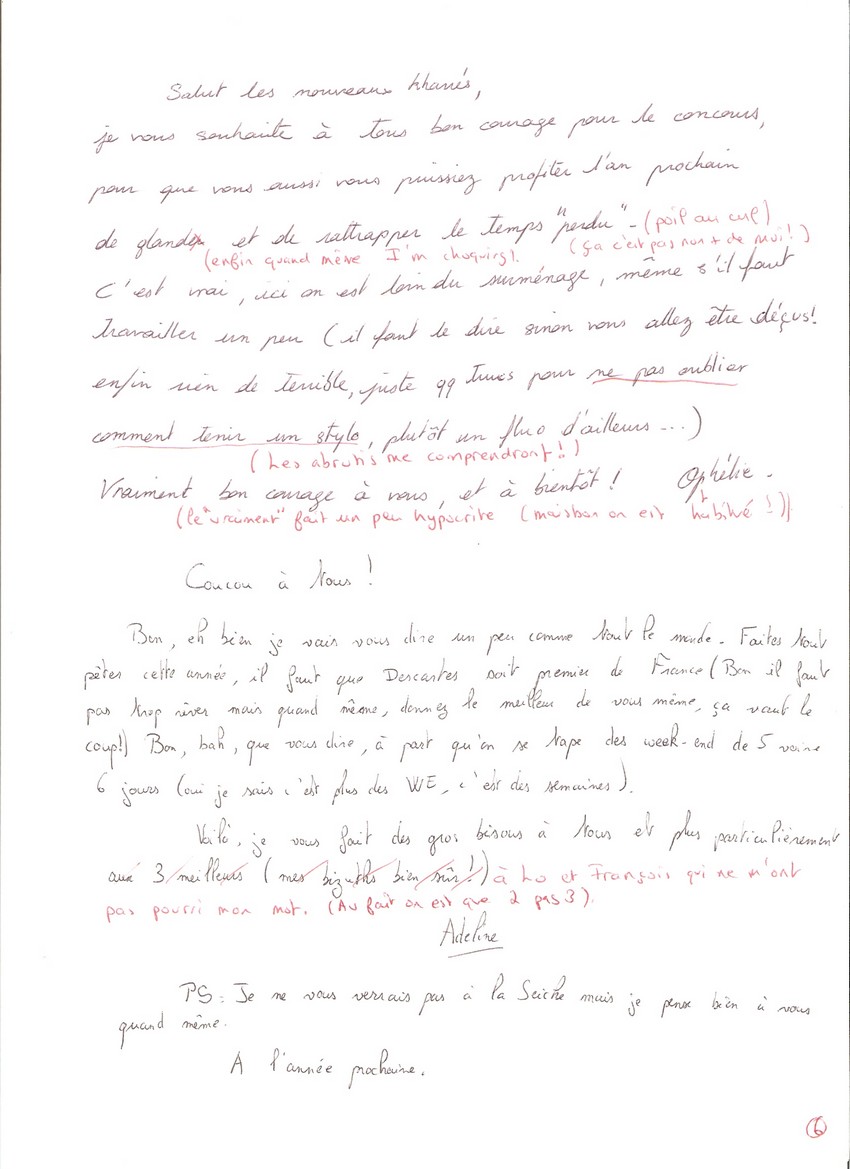 Salut les nouveaux kharrés,
je vous souhaite à tous bon courage pour le concours,
pour que vous aussi vous puissiez profiter l'an prochain
de glander et de rattrapper le temps "perdu" - (poil au cul)
(enfin quand même I'm choquing). (ça c'est pas non + de moi!)
C'est vrai, ici on est loin du surménage, même s'il faut
travailler un peu (il faut le dire sinon vous allez être déçus!
enfin rien de terrible, juste qq trucs pour ne pas oublier
comment tenir un stylo, plutôt un fluo d'ailleurs ...)
(Les abrutis me comprendront!!)
Vraiment bon courage à vous, et à bientôt! Ophélie.
(le "vraiment" fait un peu hypocrite (mais bon on est habitué!))
Coucou à tous!
Bon, eh bien je vais vous dire un peu comme tout le monde. Faites tout
pèter cette année, il faut que Descartes soit premier de France (Bon il faut
pas trop rêver mais quand même, donnez le meilleur de vous même, ça vaut le
coup!) Bon, bah, que vous dire, à part qu'on se tape des week-end de 5 voire
6 jours (oui je sais c'est plus des WE, c'est des semaines).
Voilà, je vous fait des gros bisous à tous et plus particulièrement
aux 3 meilleurs (mes bizuths bien sûr!) à Lo et François qui ne m'ont
pas pourri mon mot. (Au fait on est que 2 pas 3).
Adeline
PS: Je ne vous verrais pas à la Seiche mais je pense bien à vous
quand même.
A l'année prochaine.
6